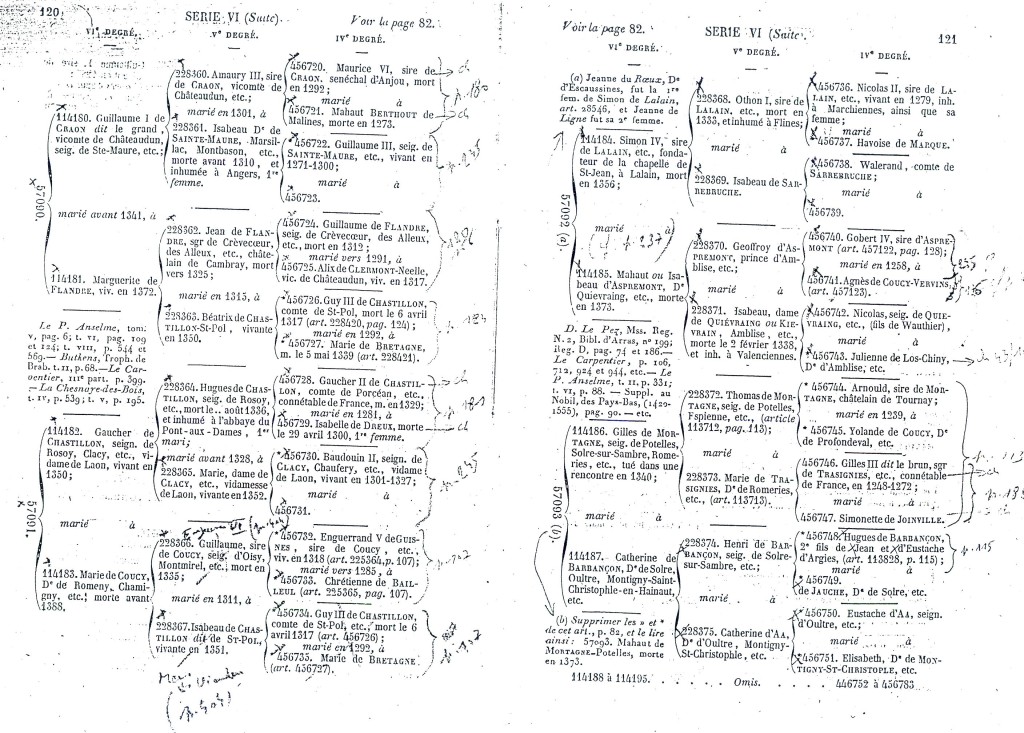 120
SERIE VI (Suite).
Voir la page 82.
VIe DEGRÉ.
Ve DEGRÉ.
IVe DEGRÉ.
57090.
114180. Guillaume I de
CRAON dit le grand,
vicomte de Châteaudun,
seig. de Ste-Maure, etc.;
marié avant 1341, à
114181. Marguerite de
FLANDRE, viv. en 1372.
Le P. Anselme, tom:
v, pag. 6; t. VI, pag. 109
et 124; t. VIII, p. 544 et
569.— Butkens, Troph. de
Brab. t. II, p. 68.— Le Car-
pentier, IIIe part. p. 399.
— La Chesnaye-des-Bois,
t. IV, p. 539; t. V, p. 195.
57091.
114182. Gaucher de
CHASTILLON, seign. de
Rosoy, Clacy, etc., vi-
dame de Laon, vivant en
1350;
marié à
114183. Marie de COUCY,
De de Romeny, Chami-
gny, etc.; morte avant
1388.
228360. Amaury III, sire
de CRAON, vicomte de
Châteaudun, etc.;
marié en 1301, à
228361. Isabeau De de
SAINTE-MAURE, Marsil-
lac, Montbason, etc.,
morte avant 1310, et
inhumée à Angers, 1re
femme.
228362. Jean de FLAN-
DRE, sgr de Crèvecœur,
des Alleux, etc., châte-
lain de Cambray, mort
vers 1325;
marié en 1315, à
228363. Béatrix de CHAS-
TILLON-St-Pol, vivante
en 1350.
228364. Hugues de CHAS-
TILLON, seig. de Rosoy,
etc., mort le.. août 1336,
et inhumé à l'abbaye du
Pont-aux-Dames, 1er
mari;
marié avant 1328, à
228365. Marie, dame de
CLACY, etc., vidamesse
de Laon, vivante en 1352.
228366. Guillaume, sire
de COUCY, seig. d'Oisy,
Montmirel, etc.; mort en
1335;
marié en 1311, à
228367. Isabeau de CHAS-
TILLON dit de ST-POL,
vivante en 1351.
456720. Maurice VI, sire de
CRAON, senéchal d'Anjou, mort
en 1292;
marié à
456721. Mahaut BERTHOUT de
Malines, morte en 1273.
456722. Guillaume III, seig. de
SAINTE-MAURE, etc., vivant en
1271-1300;
marié à
456723.
456724. Guillaume de FLANDRE,
seig. de Crèvecœur, des Alleux,
etc., mort en 1312;
marié vers 1291, à
456725. Alix de CLERMONT-Neelle,
vic. de Châteaudun, viv. en 1317.
456726. Guy III de CHASTILLON,
comte de St-Pol, mort le 6 avril
1317 (art. 228420, pag. 124);
marié en 1292, à
456727. Marie de BRETAGNE,
m. le 5 mai 1339 (art. 228421).
456728. Gaucher II de CHASTIL-
LON, comte de Porcéan, etc.,
connétable de France, m. en 1329;
marié en 1281, à
456729. Isabelle de DREUX, morte
le 29 avril 1300, 1re femme.
*456730. Baudouin II, seign. de
CLACY, Chaufery, etc., vidame
de Laon, vivant en 1301-1327;
marié à
456731.
*456732. Enguerrand V de GUIS-
NES, sire de Coucy, etc.,
viv. en 1318 (art. 225364, p. 107);
marié vers 1285, à
*456733. Chrétienne de BAIL-
LEUL (art. 225365, pag. 107).
*456734. Guy III de CHASTILLON,
comte de St-Pol, etc., mort le 6
avril 1317 (art. 456726);
marié en 1292, à
*456735. Marie de BRETAGNE
(art. 456727).
p. 235
Voir la page 82.
SERIE VI (Suite.
121
VIe DEGRÉ.
Ve DEGRÉ.
IVe DEGRÉ.
(a) Jeanne du Rœux, De
d'Escaussines, fut la 1re
fem. de Simon de Lalain,
art. 28546, et Jeanne de
Ligne fut sa 2e femme.
57092 (a).
114184. Simon IV, sire
de LALAIN, etc., fonda-
teur de la chapelle de
St-Jean, à Lalain, mort
en 1356;
marié à
114185. Mahaut ou Isa-
beau d'ASPREMONT, De
Quievraing, etc., morte
en 1373.
D. Le Pez, Mss. Reg.
N. 2, Bibl. d'Arras, no 199;
Reg. D, pag. 74 et 186.—
Le Carpentier, p. 106,
712, 924 et 944, etc.— Le
P. Anselme, t. II, p. 331;
t. VI, p. 88. — Suppl. au
Nobil. des Pays-Bas, (1420-
1555), pag. 90. — etc.
57093 (b).
114186. Gilles de MOR-
TAGNE, seig. de Potelles,
Solre-sur-Sambre, Rome-
ries, etc., tué dans une
rencontre en 1340;
marié à
114187. Catherine de
BARBANÇON, De de Solre,
Oultre, Montigny-Saint-
Christophe-en-Hainaut,
etc.
(b) Supprimer les » et *
de cet art., p. 82, et le lire
ainsi: 57093. Mahaut de
MORTAGNE-Potelles, morte
en 1373.
228368. Othon I, sire de
LALAIN, etc., mort en
1333, et inhumé à Flines;
marié à
228369. Isabeau de SAR-
REBRUCHE.
228370. Geoffroy d'AS-
PREMONT, prince d'Am-
blise, etc.;
marié à
228371. Isabeau, dame
de QUIÉVRAING ou KIE-
VRAIN, Amblise, etc.,
morte le 2 février 1338,
et inh. à Valenciennes.
228372. Thomas de MOR-
TAGNE, seig. de Potelles,
Fspienne, etc., (article
113712, pag. 113);
marié à
228373. Marie de TRA-
SIGNIES, De de Romeries,
etc., (art. 113713).
228374. Henri de BAR-
BANÇON, seig. de Solre-
sur-Sambre, etc.;
marié à
228375. Catherine d'AA,
De d'Oultre, Montigny-
St-Christophe, etc.
456736. Nicolas II, sire de LA-
LAIN, etc., vivant en 1279, inh.
à Marchiennes, ainsi que sa
femme;
marié à
456737. Havoise de MARQUE.
456738. Walerand, comte de
SARREBRUCHE;
marié à
456739.
456740. Gobert IV, sire d'ASPRE-
MONT (art. 457122, pag. 128);
marié en 1258, à
456741. Agnès de COUCY-VERVINS,
(art. 457123).
456742. Nicolas, seig. de QUIE-
VRAING, etc., (fils de Wauthier),
marié à
456743. Julienne de Los-Chiny,
De d'Amblise, etc.
*456744. Arnould, sire de MOR-
TAGNE, châtelain de Tournay;
marié en 1239, à
*456745. Yolande de COUCY, De
de Profondeval, etc.
456746. Gilles III dit le brun, sgr
de TRASIGNIES, etc., connétable
de France, en 1248-1272;
marié à
456747. Simonette de JOINVILLE.
*456748. Hugues de BARBANÇON,
2e fils de Jean et d'Eustache
d'Argies, (art. 113828, p. 115);
marié à
*456749.
de JAUCHE, De de Solre, etc.
*456750. Eustache d'AA, seign.
d'Oultre, etc.;
marié à
*456751. Elisabeth, De de MON-
TIGNY-ST-CHRISTOPLE, etc.
p. 237
p. 115
114188 à 114195. . . . . . . Omis. . . . . . 446752 à 456783.